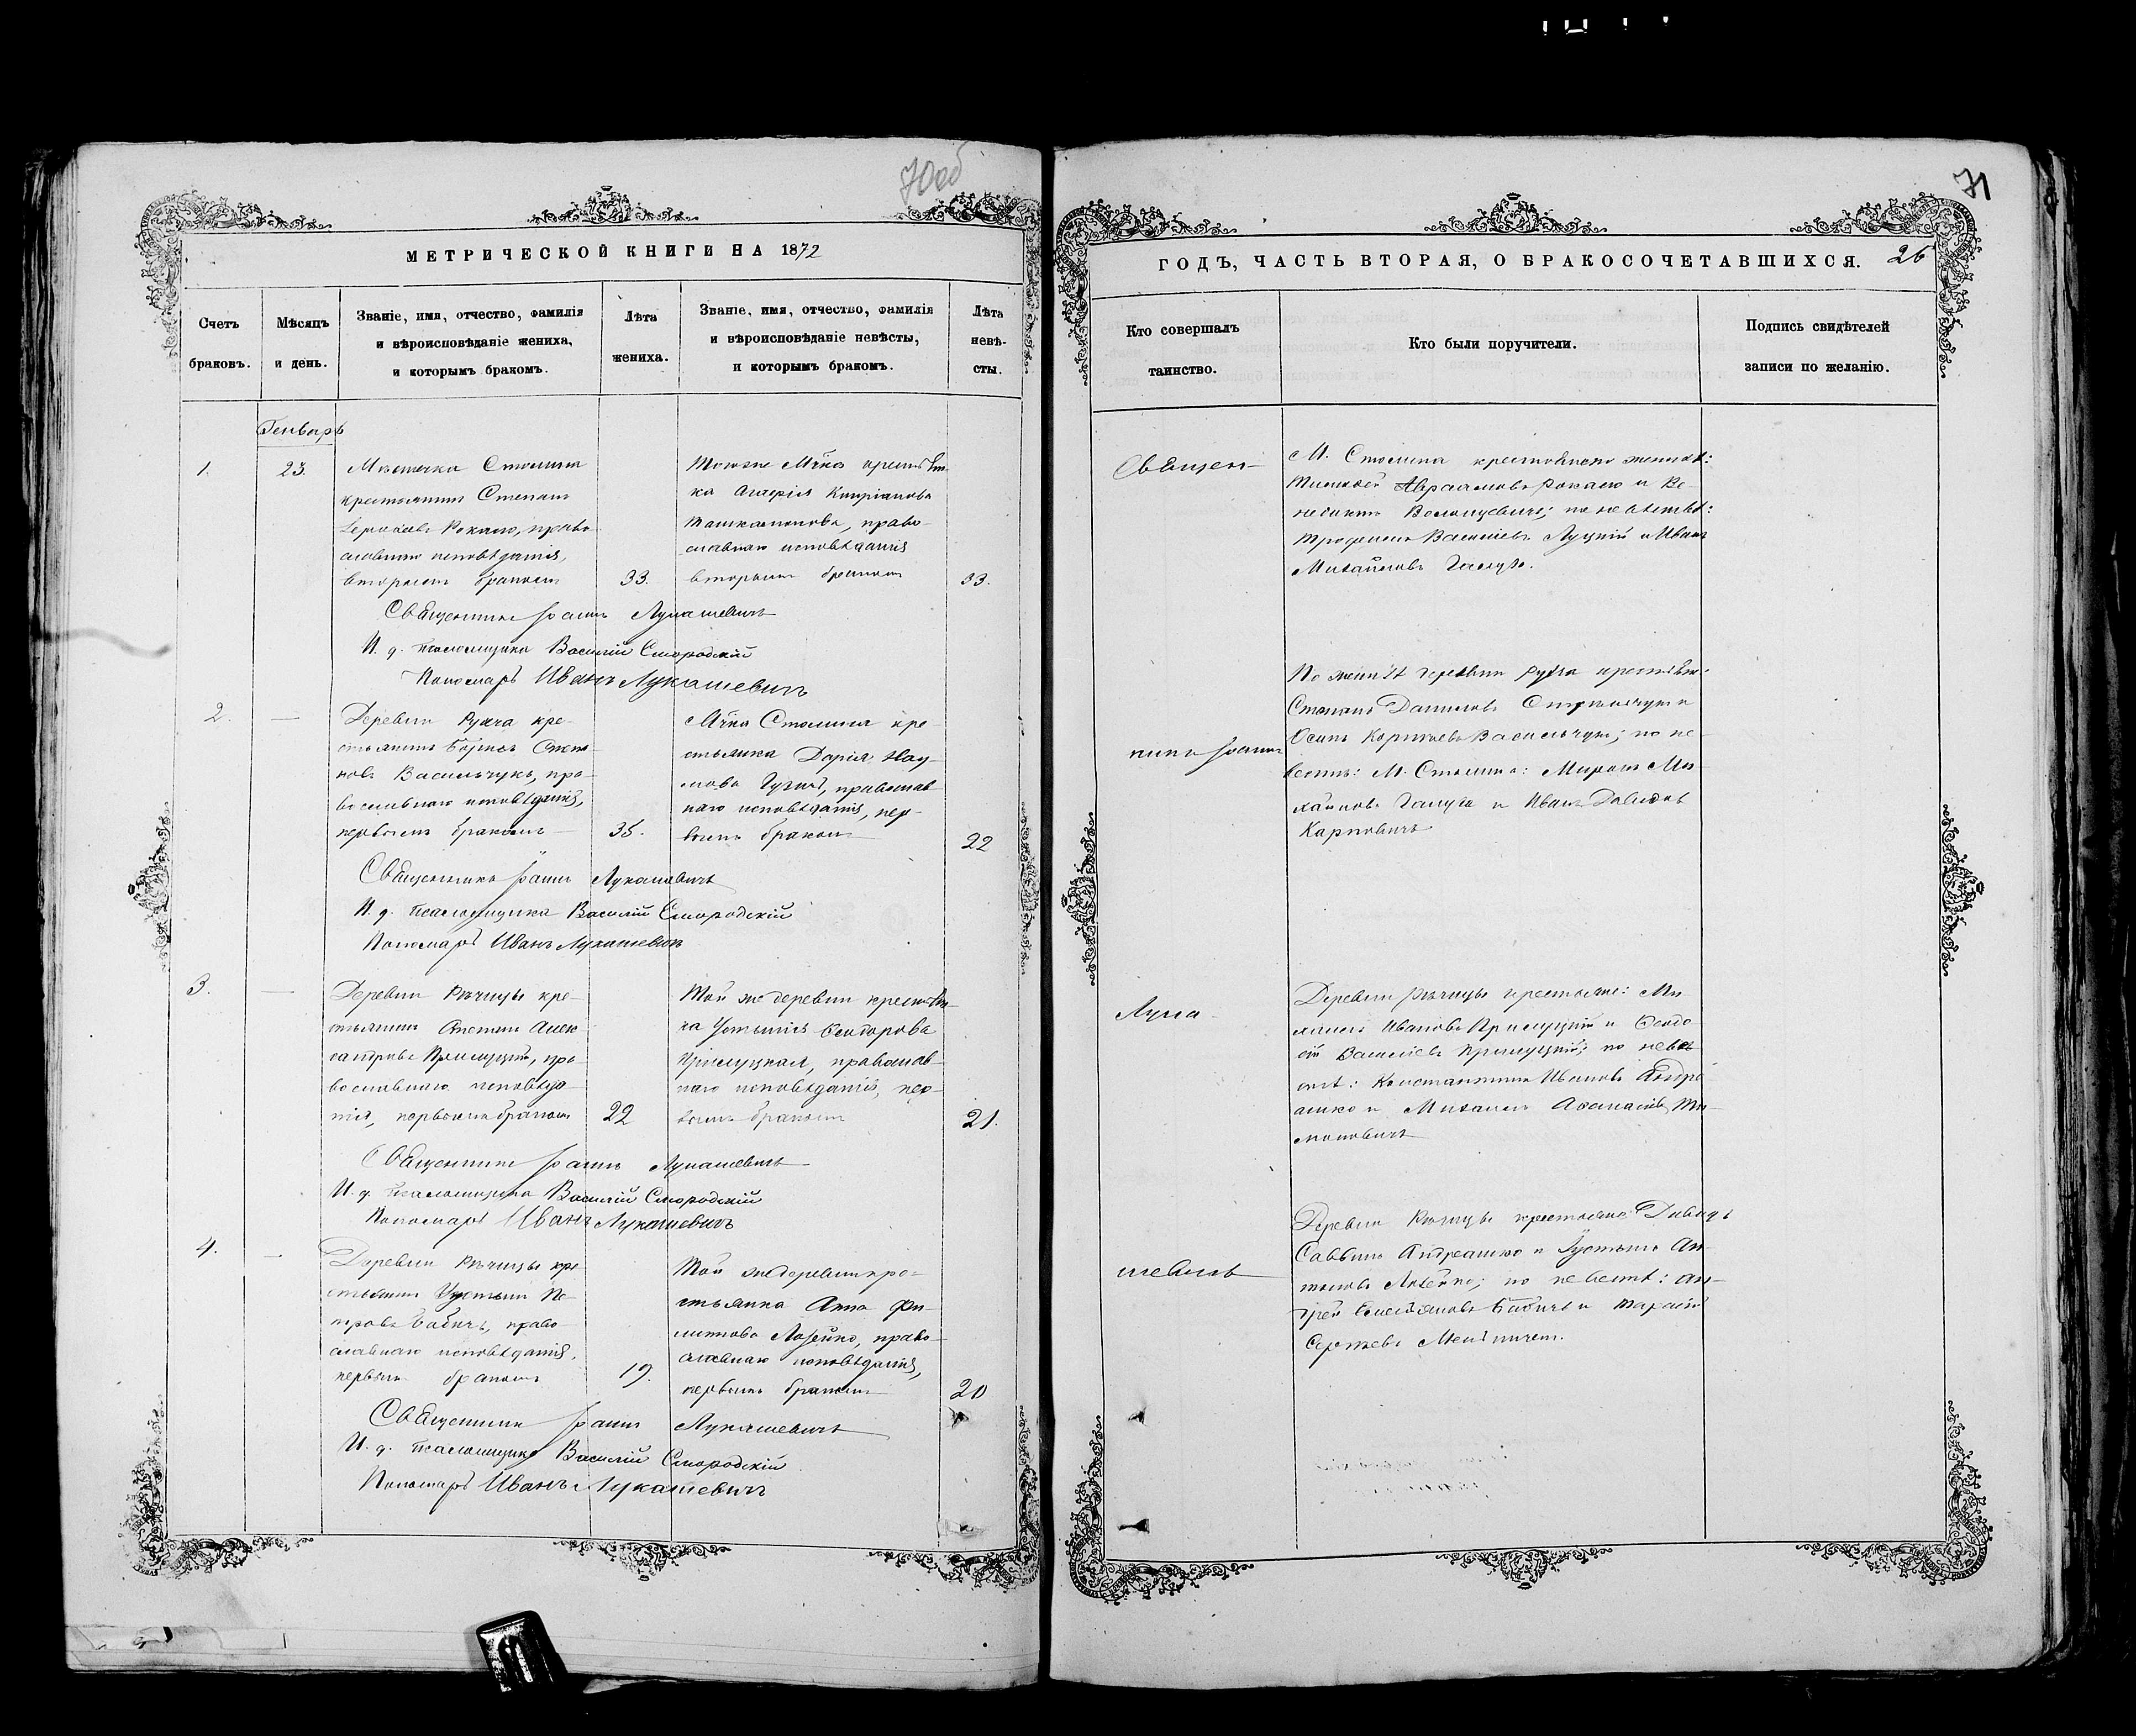 70об
МЕТРИЧЕСКОЙ КНИГИ НА 1872
Счетъ браковъ.
Мѣсяцъ и день.
Званіе, имя, отчество, фамилія
и вѣроисповѣданіе жениха,
и которымъ бракомъ.
Лѣта жениха.
Званіе, имя, отчество, фамилія
и вѣроисповѣданіе невѣсты,
и которымъ бракомъ.
Лѣта невѣ-
сты.
Генварь
1.
23.
Мѣстечка Столина
крестьянинъ Степанъ
православнаго исповѣданія,
вторымъ бракомъ
33.
Тогоже М-чка крестьян-
ка Агафія Кипріанова
право-
славнаго исповѣданія
вторымъ бракомъ
33.
Священникъ Іоаннъ Лукашевичъ
И. д. Псаломщика Василій Смородскій
Пономарь Иванъ Лукашевичъ
2.
—
Деревни Рухча кре-
стьянинъ Борисъ
Васильчукъ, пра-
вославнаго исповѣданія,
первымъ бракомъ
35.
М-чка Столина кре-
стьянка Дарія Нау-
мова православ-
наго исповѣданія, пер-
вымъ бракомъ
22
Священникъ Іоаннъ Лукашевичъ
И. д. Псаломщика Василій Смородскій
Пономарь Иванъ Лукашевичъ
3.
—
Деревни Рѣчицы кре-
стьянинъ Степанъ Алек-
сандровъ Прилуцкій, пра-
вославнаго исповѣда-
нія, первымъ бракомъ
22
Той же деревни крестьян-
ка Устинія Ѳеодорова
Прилуцкая, православ-
наго исповѣданія, пер-
вымъ бракомъ
21.
Священникъ Іоаннъ Лукашевичъ
И. д. Псаломщика Василій Смородскій
Пономарь Иванъ Лукашевичъ
4.
—
Деревни Рѣчицы кре-
стьянинъ Устинъ Пе-
тровъ Бабичъ, право-
славнаго исповѣданія,
первымъ бракомъ
19.
Той же деревни кре-
стьянка Анна Фи-
липпова право-
славнаго исповѣданія,
первымъ бракомъ
20
Священникъ Іоаннъ Лукашевичъ
И. д. Псаломщика Василій Смородскій
Пономарь Иванъ Лукашевичъ
71
ГОДЪ, ЧАСТЬ ВТОРАЯ, О БРАКОСОЧЕТАВШИХСЯ.
26
Кто совершалъ
таинство.
Кто были поручители.
Подпись свидѣтелей
записи по желанію.
Священ-
никъ Іоаннъ
Лука-
шевичъ
М. Столина крестьяне по женихѣ:
Тимоѳей Авраамовъ и Ве-
по невѣстѣ:
Василіевъ Луцкій и Иванъ
Михайловъ Галуха.
По женихѣ деревни Рухча крестьян:
Степанъ Даниловъ и
Осипъ Васильчукъ; по не-
вѣстѣ: М. Столина: Миронъ Ми-
хайловъ Галуха и Иванъ Давидовъ
Карповичъ
Деревни Рѣчицы крестьяне: Ми-
хаилъ Ивановъ Прилуцкій и Ѳеодо-
сій Василіевъ Прилуцкій; по невѣ-
стѣ: Константинъ Ивановъ Андре-
ашко и Михаилъ Аѳанасіевъ
Деревни Рѣчицы крестьяне: Давидъ
Саввинъ Андреашко и Устинъ Ан-
по невѣстѣ: Ан-
дрей Бабичъ и Тарасій
Сергѣевъ